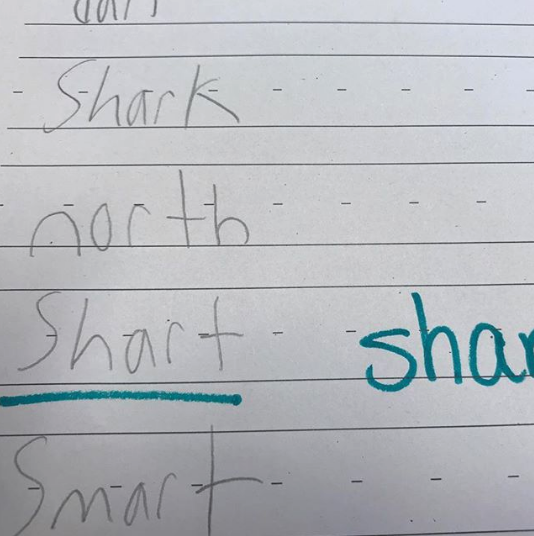 Shark
north
Shart shar
Smart